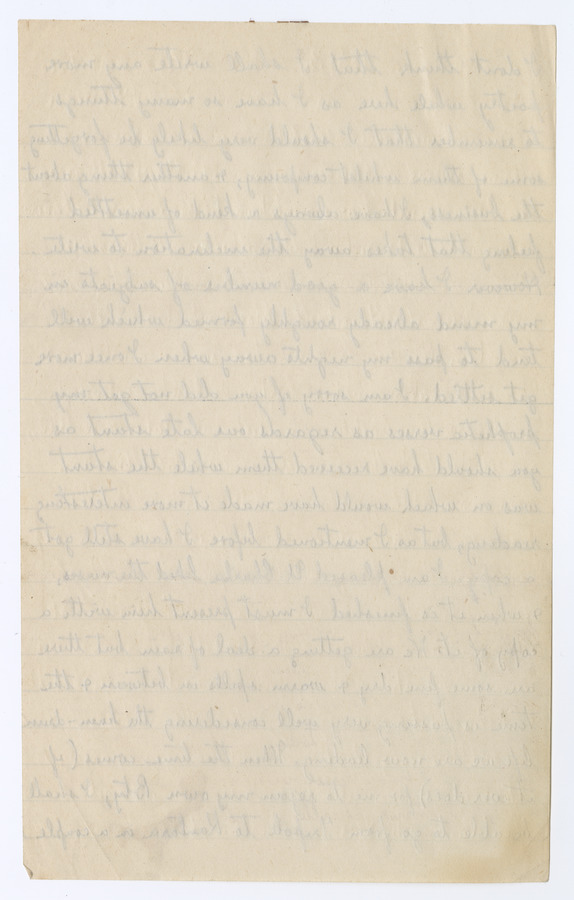 I don't think that I shall write any more
poetry while here as I have so many things
to remember that I should very likely be forgetting
some of them whilst composing, & another thing about
the business, there's always a kind of unsettled
feeling that takes away the inclination to write.
However I have a good number of subjects in
my mind already roughly formed which will
tend to pass my nights away when I once more
get settled. I am sorry if you did not get my
prophetic verses as regards our late stunt as
you should have received them while the stunt
was on which would have made it more interesting
reading, but as I mentioned before I have still got
a copy. I am pleased U Charlie liked the verses,
& when it's finished I must present him with a
copy of it. We are getting a deal of rain but there
are some fine dry & warm spells in between & the
time is passing very well considering the
life we are now leading. When the time comes (if
it ever does) for me to rejoin my own Bty, I shall
be able to go from to in a couple